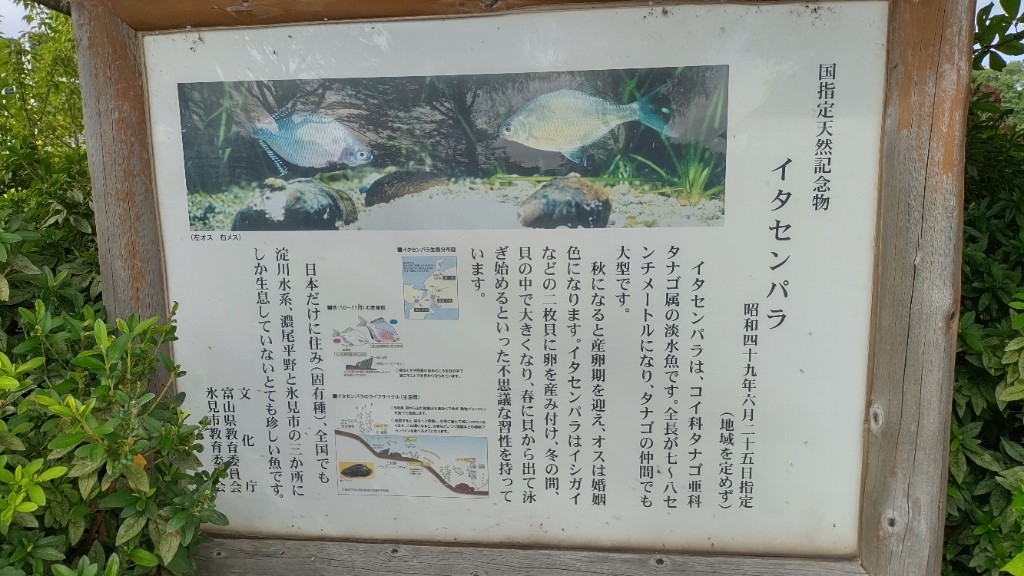 国指定天然記念物
イタセンパラ
昭和四十九年六月二十五日指定
（地域を定めず）
イタセンパラは、コイ科タナゴ亜科
タナゴ属の淡水魚です。全長が七～八セ
ンチメートルになり、タナゴの仲間でも
大型です。
秋になると産卵期を迎え、オスは婚姻
色になります。イタセンパラはイシガイ
などの二枚貝に卵を産み付け、冬の間、
貝の中で大きくなり、春に貝から出て泳
ぎ始めるといった不思議な習性を持って
います。
（左オス 右メス）
■イタセンパラ生息分布図
■イタセンパラのライフサイクル（生活環）
日本だけに住み（固有種）、全国でも
淀川水系、濃尾平野と氷見市の三か所に
しか生息していないとても珍しい魚です。
文化庁
富山県教育委員会
氷見市教育委員会